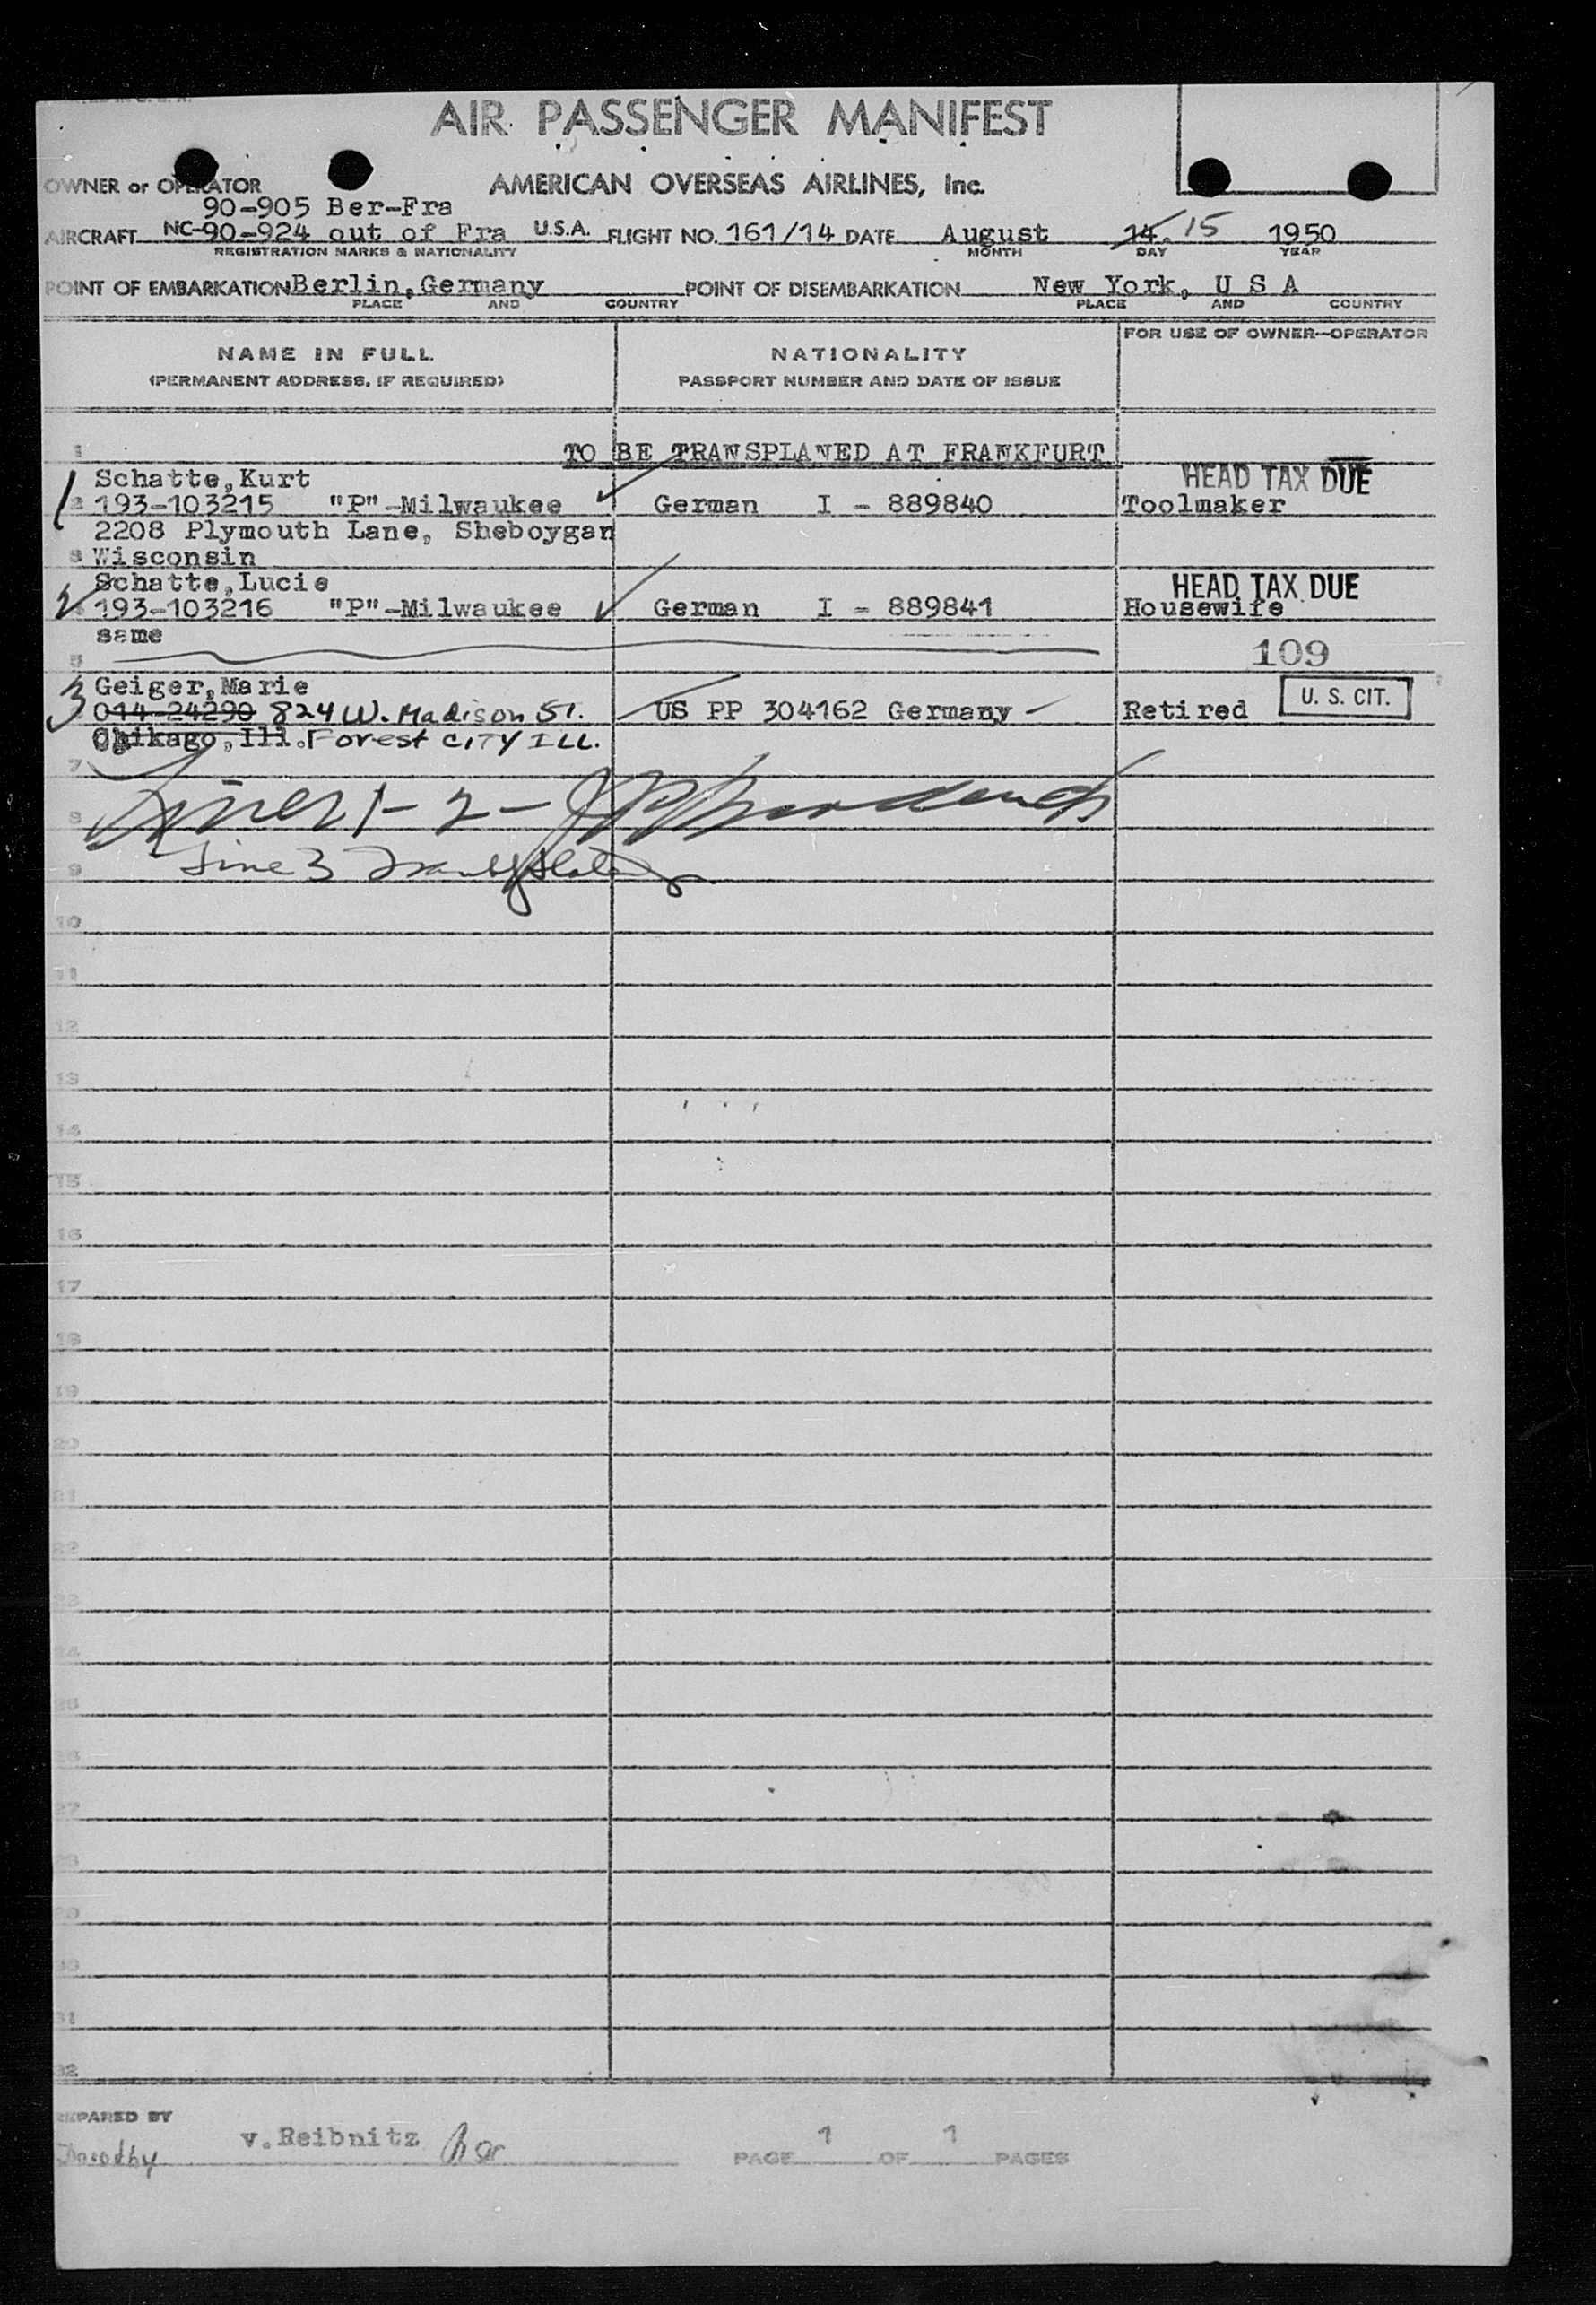 AIR PASSENGER MANIFEST
OWNER or OPERATOR AMERICAN OVERSEAS AIRLINES, Inc.
90-905 Ber-Fra
AIRCRAFT NC-90-924 out of Fra U.S.A. FLIGHT NO. 161/14 DATE August 14. 15 1950
REGISTRATION MARKS & NATIONALITY MONTH DAY YEAR
POINT OF EMBARKATION Berlin,Germany POINT OF DISEMBARKATION New York, U S A
PLACE AND COUNTRY PLACE AND COUNTRY
FOR USE OF OWNER-OPERATOR
NAME IN FULL NATIONALITY
(PERMANENT ADDRESS, IF REQUIRED) PASSPORT NUMBER AND DATE OF ISSUE
1 TO BE TRANSPLANED AT FRANKFURT
Schatte,Kurt HEAD TAX DUE
1 2 193-103215 "P"-Milwaukee German I - 889840 Toolmaker
2208 Plymouth Lane, Sheboygan
3 Wisconsin
Schatte,Lucie HEAD TAX DUE
2 193-103216 "P"-Milwaukee German I - 889841 Housewife
same
5 109
Geiger,Marie
3 014-24290 824 W. Madison St. US PP 304162 Germany Retired U. S. CIT.
Chikago,Ill. Forest CITY ILL.
7
8 Lines 1-2-
9 Line 3
10
11
12
13
14
15
16
17
18
19
20
21
22
23
24
25
26
27
28
29
30
31
32
PREPARED BY
Dorothy v.Reibnitz
PAGE 1 OF 1 PAGES